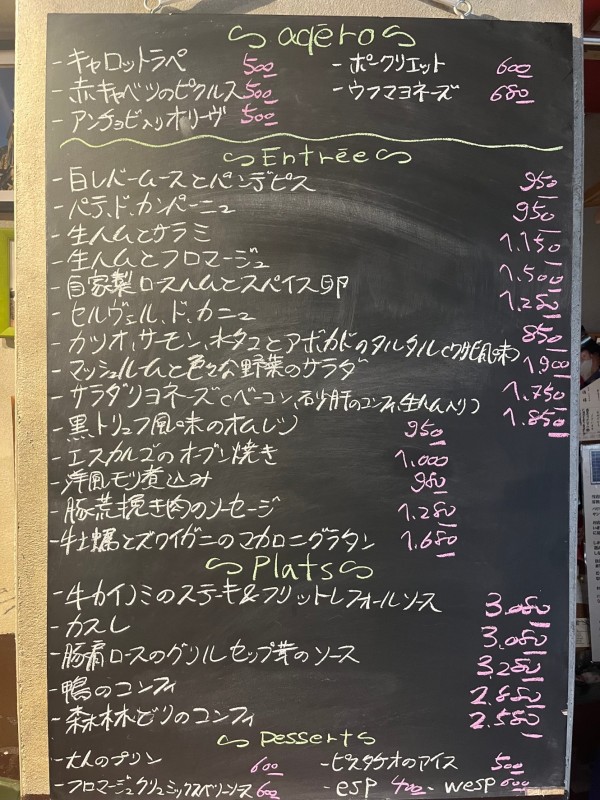 apéro
- キャロットラペ 500 - ポークリエット 600
- 赤キャベツのピクルス 500 - ウフマヨネーズ 680
- アンチョビ入りオリーヴ 500
Entrée
- 白レバームースとパンデピス 950
- パテ、ド、カンパーニュ 950
- 生ハムとサラミ 1.150
- 生ハムとフロマージュ 1.500
- 自家製ロースハムとスパイス卵 1.280
- セルヴェル、ド、カニュ 850
- カツオ、サーモン、水タコとアボカドのタルタル(ワサビ風味) 1.900
- マッシュルームと色々な野菜のサラダ 1.750
- サラダリヨネーズ(ベーコン、砂肝のコンフィ、生ハム入り) 1.850
- 黒トリュフ風味のオムレツ 950
- エスカルゴのオーブン焼き 1.000
- 洋風モツ煮込み 980
- 豚荒挽き肉のソーセージ 1.280
- 牡蠣とズワイガニのマカロニグラタン 1.680
Plats
- 牛カイノミのステーキ&フリットレフォールソース 3.080
- カスレ 3.080
- 豚肩ロースのグリルセップ茸のソース 3.280
- 鴨のコンフィ 2.880
- 森林どりのコンフィ 2.580
Desserts
- 大人のプリン 600 - ピスタチオのアイス 500
- フロマージュクリュミックスベリーソース 600 - esp 400 - wesp 600